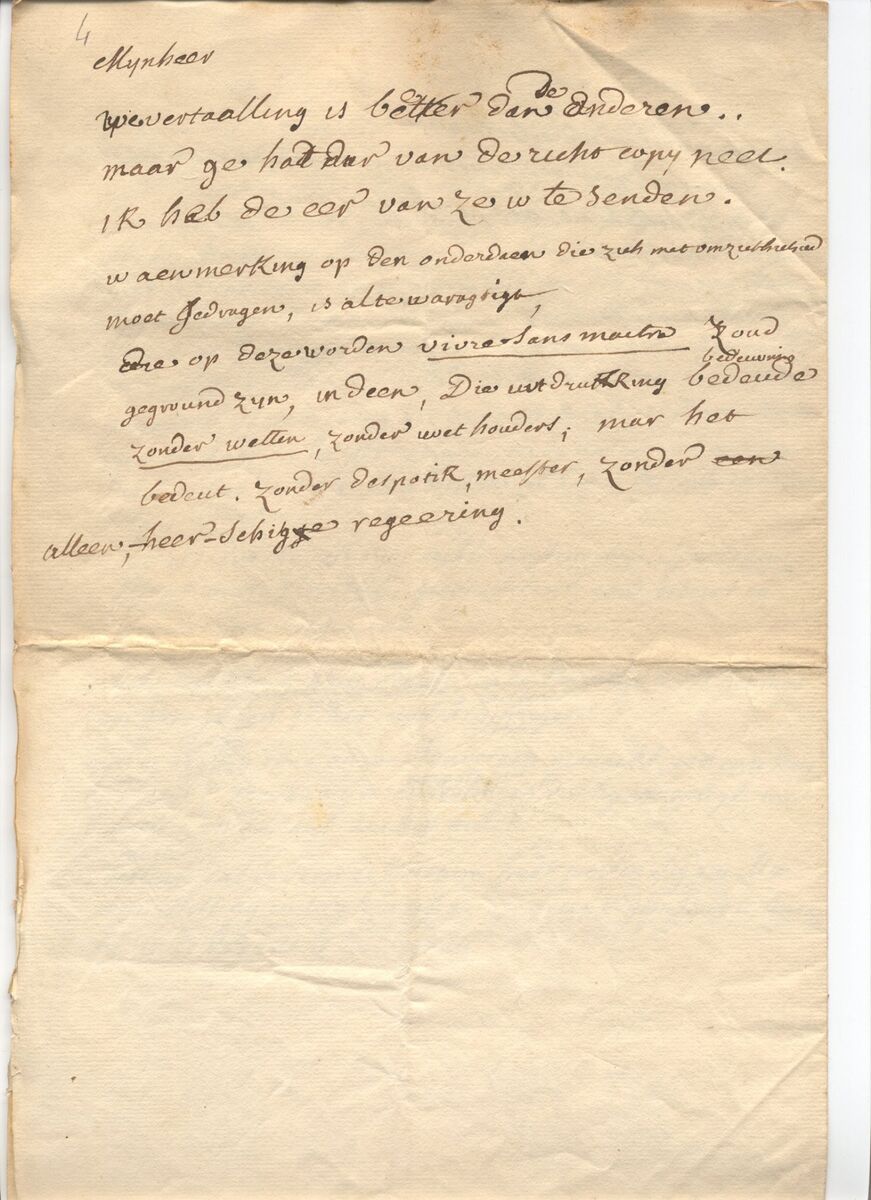 4
Mynheer
uwe vertaalling is better dan de anderen..
maar ge had daar van de richt copy neet.
ik heb de eer van ze w te senden.
w aenmerking op den onderdaen die zich met omzichtichied
moet gedragen, is al te waragtigt,
op deze worden vivre sans maitre zoud
geground zyn, indeen, Die uutdrukking bedeude
bedeuvring
zonder wetten, zonder wethouders; mar het
bedeut. zonder despotik, meester, zonder een
alleen, heer-schigge regeering.